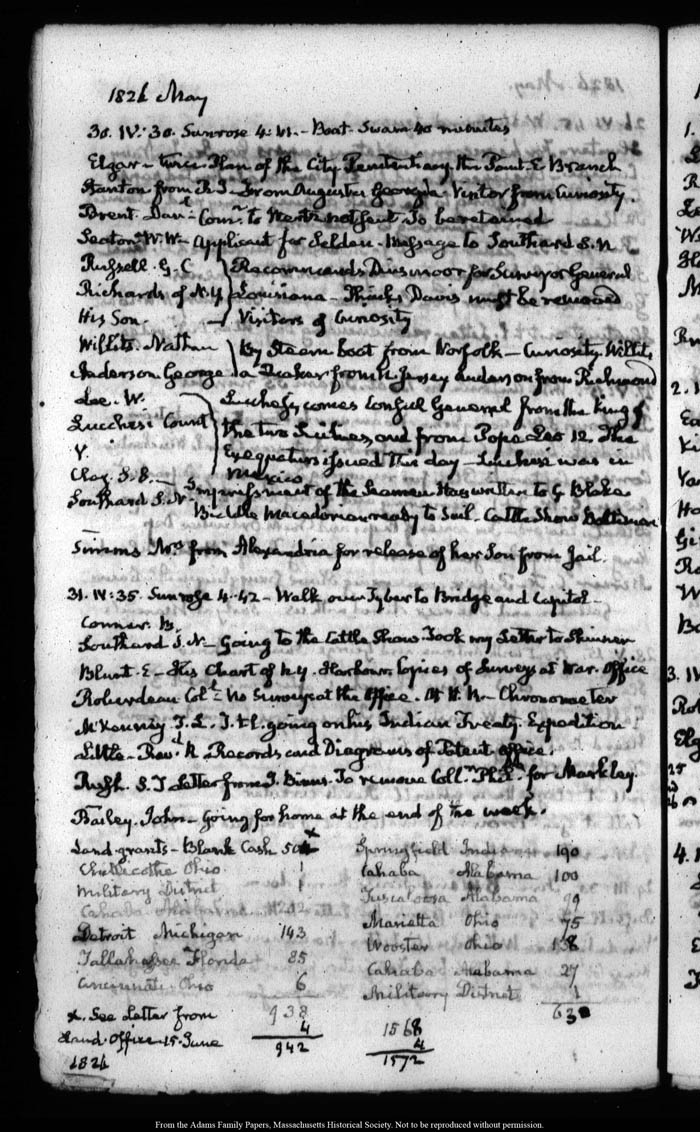 1826 May
30. IV:30. Sunrose 4:41. - Boat - Swam 40 minutes
Elgar - twice. Plan of the City Penitentiary. the Point. E Branch
Stanton from R.I. - from Augusta Georgia. Visitor from Curiosity.
Brent. Danl - Commn to Wertz not sent. To be retained
Seaton. W. W - Applicant for Selden. Message to Southard S. N
Russell. G. C Recommends Dinsmoor for Surveyor General
Richards of N.Y Louisiana - Thinks Davis must be removed
His Son. - Visitors of Curiosity
Willits. Nathan By Steam boat from Norfolk - Curiosity. Willits
Anderson George a Quaker from N. Jersey Anderson from Richmond
Lee. W.
Lucchesi Count Lucchesi, comes Consul General from the King of
the two Sicilies, and from Pope Leo 12. The
Y. Exequaturs issued this day - Lucchesi was in
Mexico
Clay. S. S. - Impressment of the Seamen Has written to G Blake
Southard S. N. Biddle Macedonian ready to Sail. Cattle Show Baltimore
Simms Mrs from Alexandria for release of her Son from Jail.
31. IV:35. Sunrose 4:42 - Walk over Tyber to Bridge and Capitol -
Conner. B.
Southard S. N - Going to the Cattle Show. Took my Letter to Skinner
Blunt. E - His Chart of N.Y. Harbour. Copies of Surveys at War. Office
Roberdeau Colt No Surveys at the Office. Chronometer
McKenney T. L. I. & L. going on his Indian Treaty Expedition
Little - Revd R. Records and Diagrams of Patent office.
Rush. S. T Letter from J. Binns. To remove Colln Phila for Markley
Bailey. John - Going for home at the end of the week.
Land grants - Blank Cash 504 x Springfield Indiana 190
Chillicothe Ohio. 1 Cahaba Alabama 100
Military District 1 Tuscaloosa Alabama 99
Cahaba Alabama Marietta Ohio 75
Detroit Michigan 143 Wooster Ohio 138
Tallahassee Florida 85 Cahaba Alabama 27
Cincinnati Ohio 6 Military District 1
x. See Letter from 938 630
Land. Office 15. June 4 1568
1826 942 4
1572
From the Adams Family Papers, Massachusetts Historical Society. Not to be reproduced without permission.